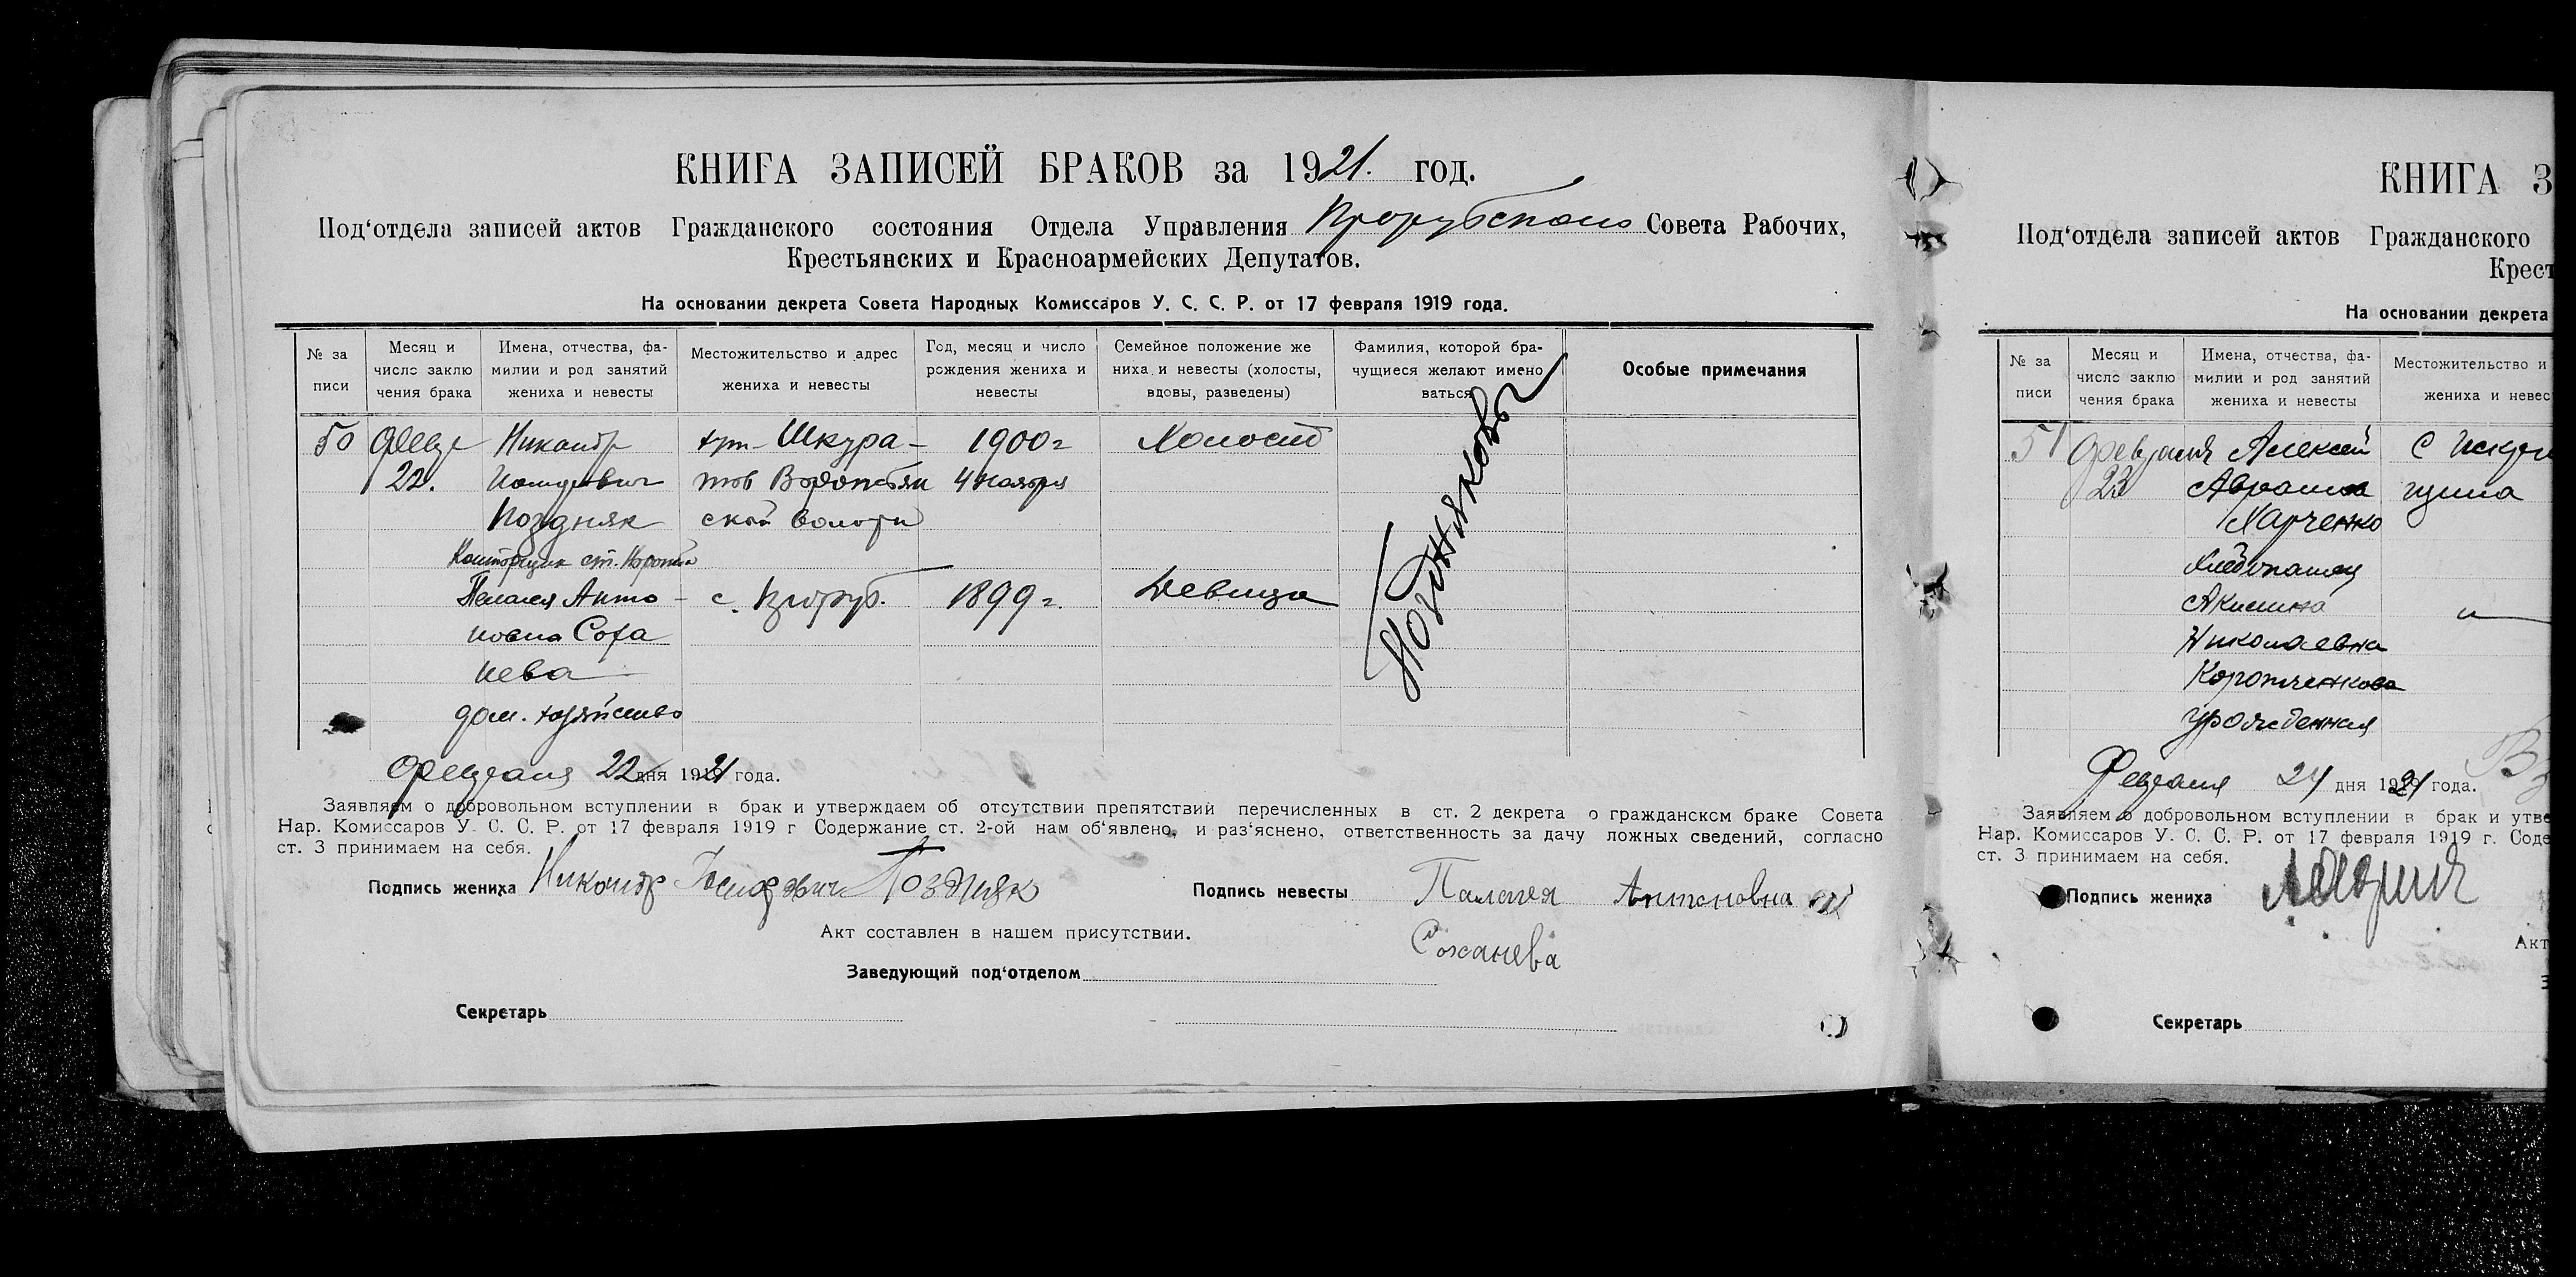 КНИГА ЗАПИСЕЙ БРАКОВ за 1921. год.
Под‘отдела записей актов Гражданского состояния Отдела Управления Прорубского Совета Рабочих,
Крестьянских и Красноармейских Депутатов.
На основании декрета Совета Народных Комиссаров У. С. С. Р. от 17 февраля 1919 года.
№ за
писи
Месяц и
число заклю
чения брака
Имена, отчества, фа-
милии и род занятий
жениха и невесты
Местожительство и адрес
жениха и невесты
Год, месяц и число
рождения жениха и
невесты
Семейное положение же
ниха и невесты (холосты,
вдовы, разведены)
Фамилия, которой бра-
чущиеся желают имено
ваться
Особые примечания
50
22.
Никандр
Поздняк
хут- Шкура-
тов
ской волости
1900 г
4 ноября
Холост
Поздняковы
Пелагея Анто-
новна Соха
нева
дом. хозяйство
с.
1899 г.
Девица
Февраля 22 дня 1921 года.
Заявляем о добровольном вступлении в брак и утверждаем об отсутствии препятствий перечисленных в ст. 2 декрета о гражданском браке Совета
Нар. Комиссаров У. С. С. Р. от 17 февраля 1919 г Содержание ст. 2-ой нам об‘явлено, и раз‘яснено, ответственность за дачу ложных сведений, согласно
ст. 3 принимаем на себя.
Подпись жениха Никандр Поздняк
Подпись невесты Палагея Антоновна
Соханева
Акт составлен в нашем присутствии.
Заведующий под‘отделом
Секретарь
КНИГА З
Под‘отдела записей актов Гражданского
Крест
На основании декрета
№ за
писи
Месяц и
число заклю
чения брака
Имена, отчества, фа-
милии и род занятий
жениха и невесты
Местожительство и
жениха и невес
51
Февраля
23
Алексей
Харченко
Хлебопашец
Акилина
Николаевна
Коротченкова
урожденная
С
Февраля 24 дня 1921 года.
Заявляем о добровольном вступлении в брак и утве
Нар. Комиссаров У. С. С. Р. от 17 февраля 1919 г. Соде
ст. 3 принимаем на себя.
Подпись жениха
Акт
З
Секретарь